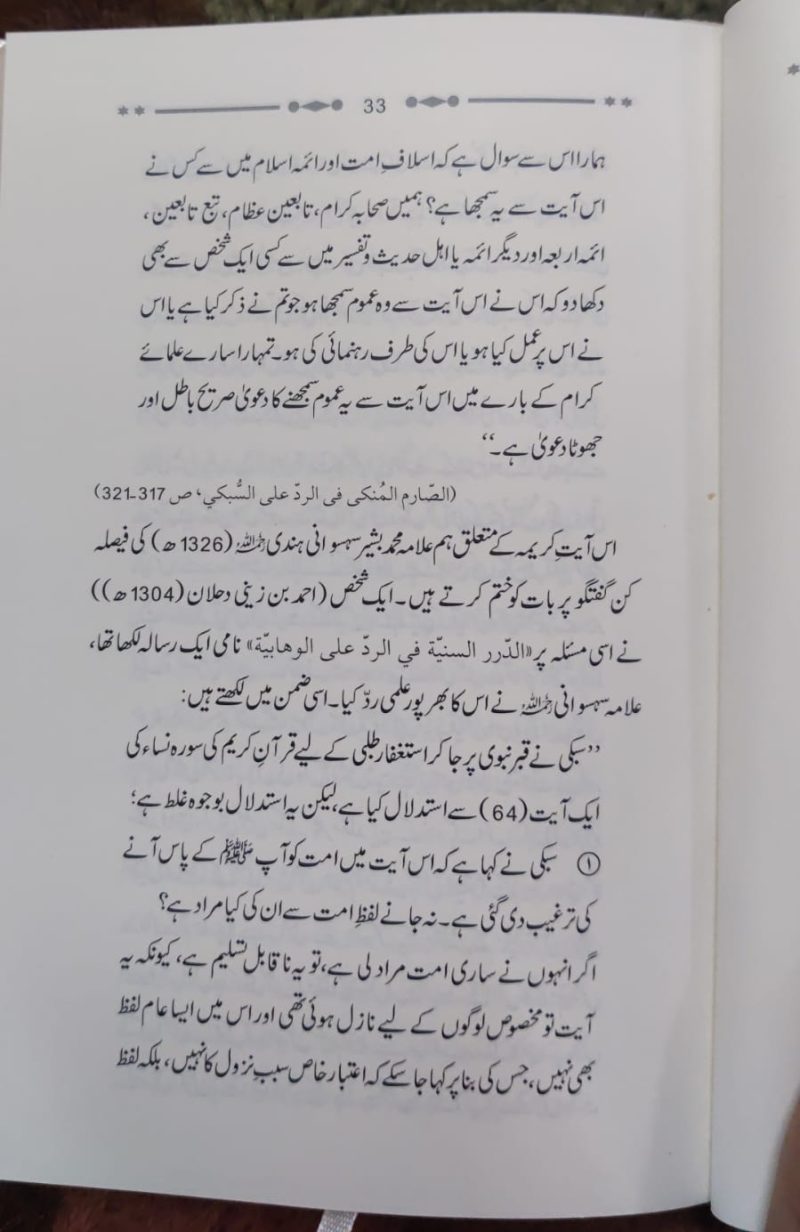 33
ہمارا اس سے سوال ہے کہ اسلافِ امت اور ائمہ اسلام میں سے کس نے
اس آیت سے یہ سمجھا ہے؟ ہمیں صحابہ کرام، تابعین عظام، تبع تابعین،
ائمہ اربعہ اور دیگر ائمہ یا اہل حدیث و تفسیر میں سے کسی ایک شخص سے بھی
دکھا دو کہ اس نے اس آیت سے وہ عموم سمجھا ہو جو تم نے ذکر کیا ہے یا اس
نے اس پر عمل کیا ہو یا اس کی طرف رہنمائی کی ہو۔ تمہارا سارے علمائے
کرام کے بارے میں اس آیت سے یہ عموم سمجھنے کا دعویٰ صریح باطل اور
جھوٹا دعویٰ ہے۔‘‘
(الصّارم المُنكي في الردّ على السُّبكي، ص 317-321)
اس آیتِ کریمہ کے متعلق ہم علامہ محمد بشیر سہسوانی ہندی رحمہ اللہ (1326 ھ) کی فیصلہ
کن گفتگو پر بات کو ختم کرتے ہیں۔ ایک شخص (احمد بن زینی دحلان (1304 ھ))
نے اسی مسئلہ پر «الدّرر السنيّة في الردّ على الوهابيّة» نامی ایک رسالہ لکھا تھا،
علامہ سہسوانی رحمہ اللہ نے اس کا بھرپور علمی ردّ کیا۔ اسی ضمن میں لکھتے ہیں:
’’سبکی نے قبر نبوی پر جا کر استغفار طلبی کے لیے قرآنِ کریم کی سورہ نساء کی
ایک آیت (64) سے استدلال کیا ہے، لیکن یہ استدلال بوجوہ غلط ہے؛
① سبکی نے کہا ہے کہ اس آیت میں امت کو آپ ﷺ کے پاس آنے
کی ترغیب دی گئی ہے۔ نہ جانے لفظِ امت سے ان کی کیا مراد ہے؟
اگر انہوں نے ساری امت مراد لی ہے، تو یہ ناقابل تسلیم ہے، کیونکہ یہ
آیت تو مخصوص لوگوں کے لیے نازل ہوئی تھی اور اس میں ایسا عام لفظ
بھی نہیں، جس کی بنا پر کہا جا سکے کہ اعتبار خاص سببِ نزول کا نہیں، بلکہ لفظ